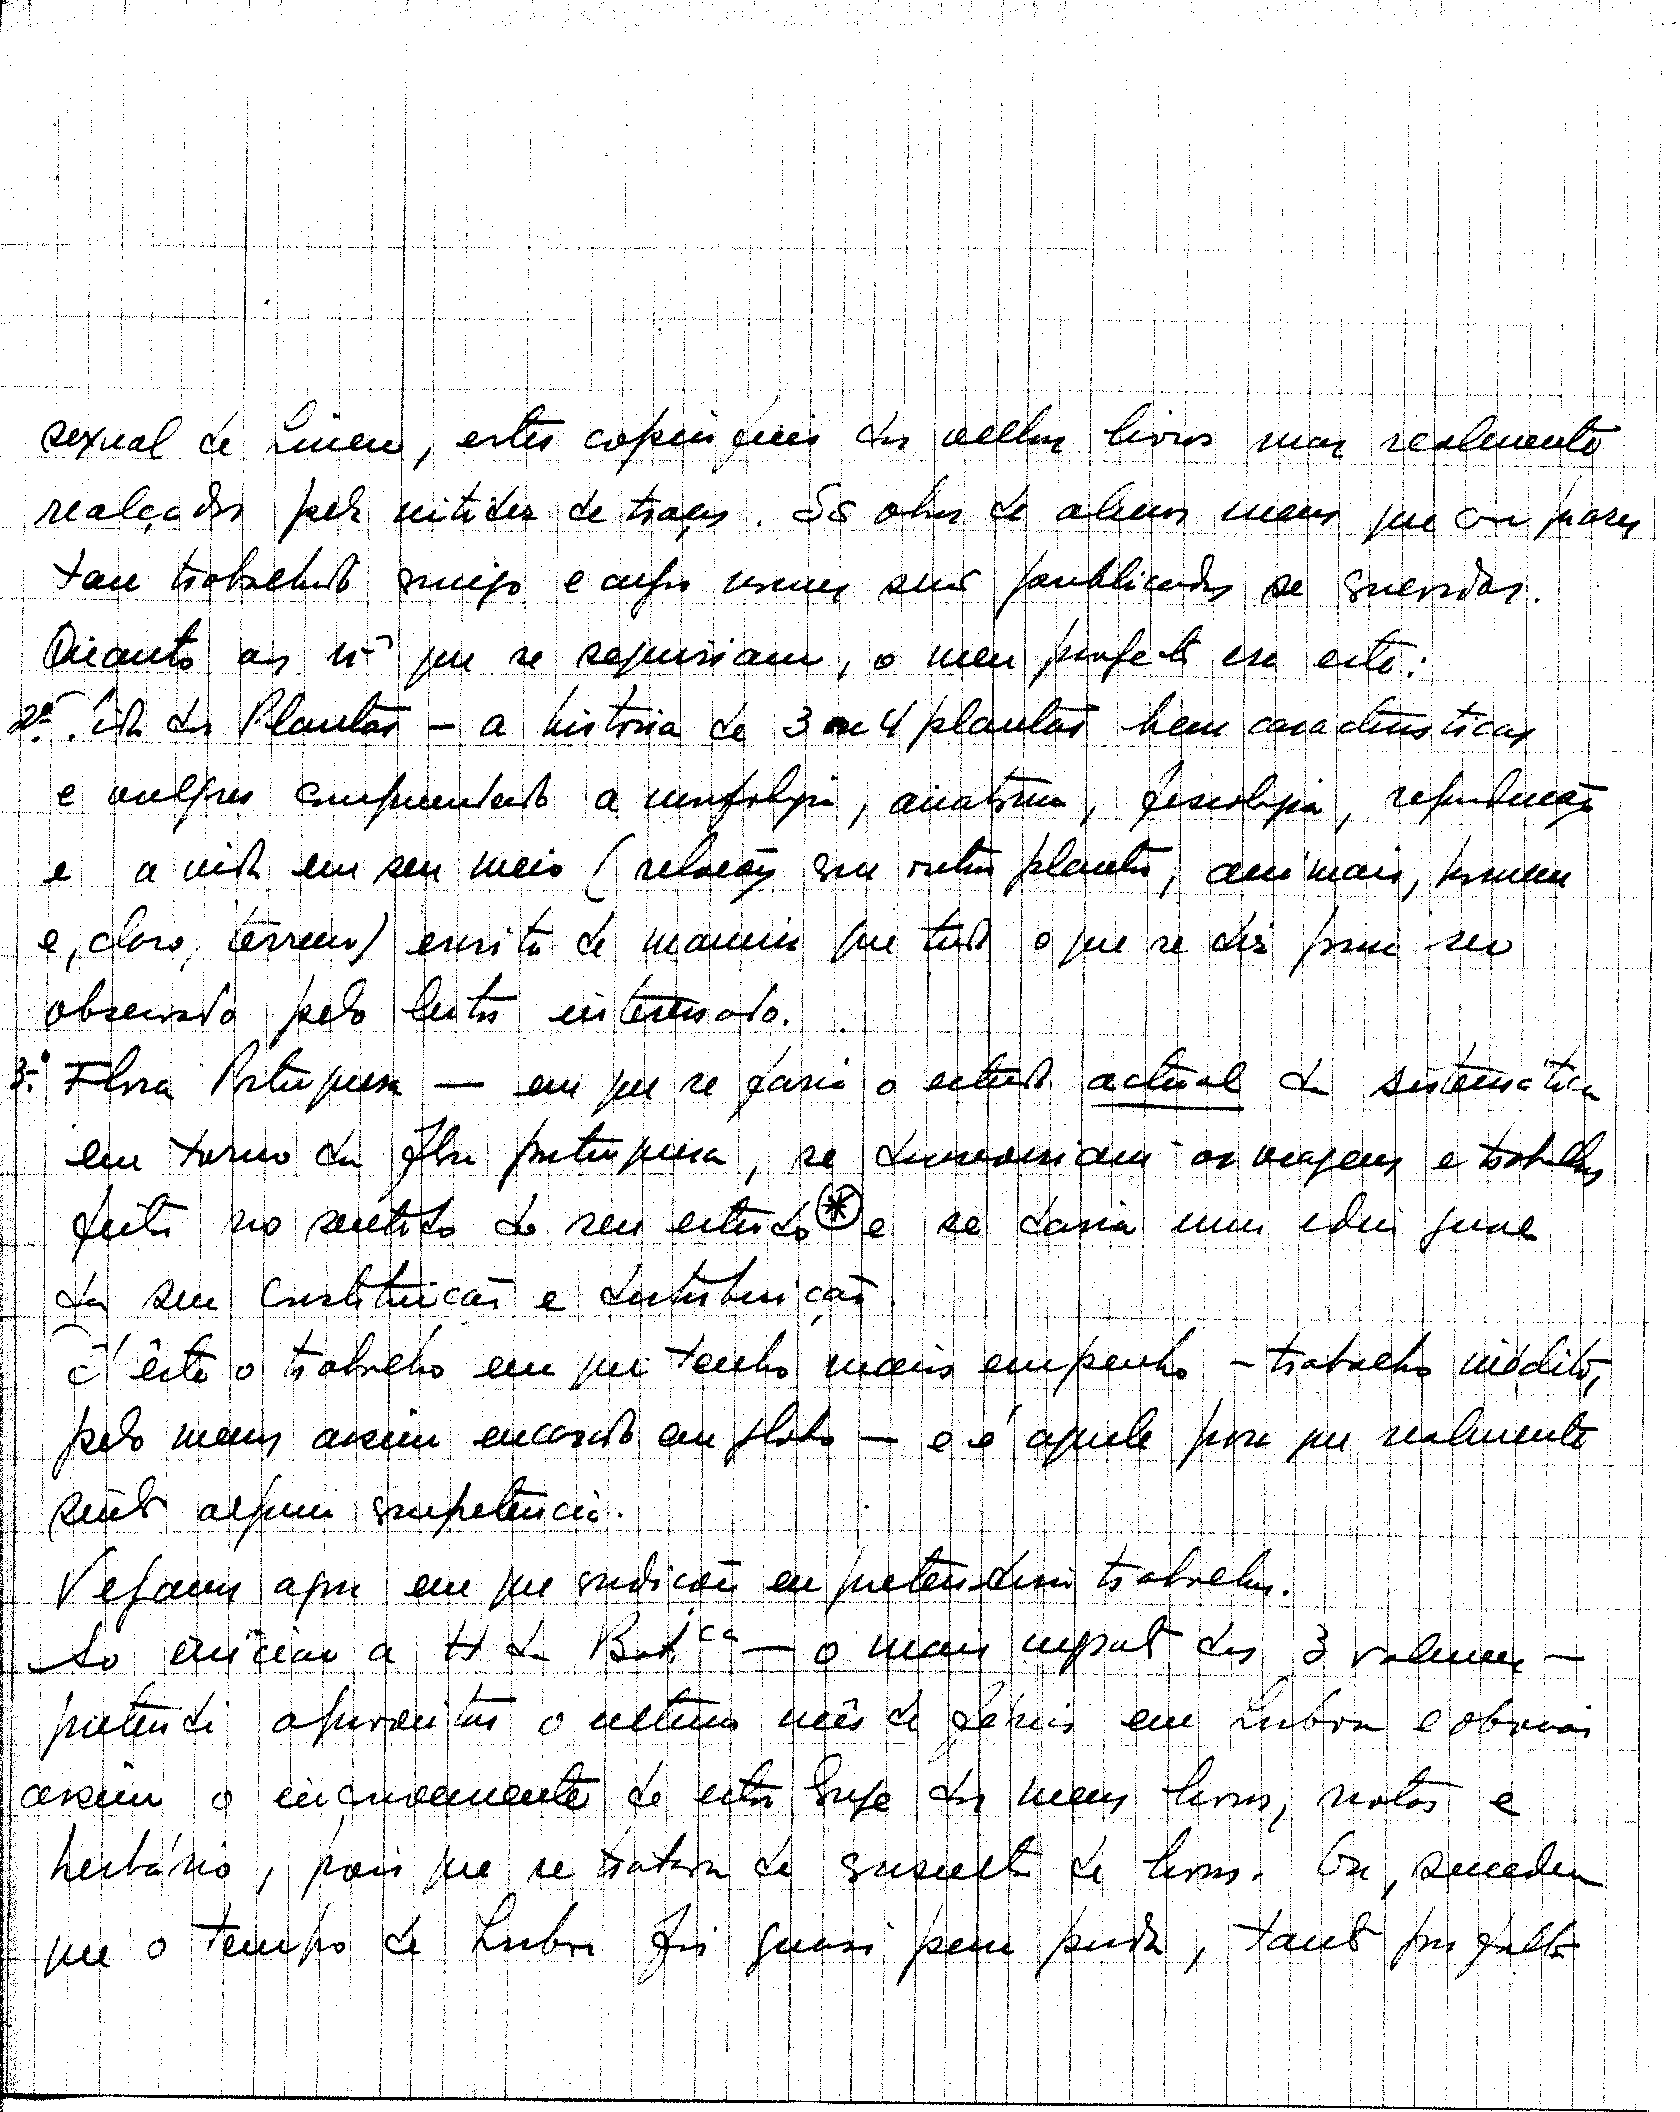 sexual de Lineu, estes copiados dos velhos livros mas realmente
realçados pela nitidez de traços. São obra de alunos meus que em tempos
tem trabalhado comigo e cujos nomes serão publicados se quiseres.
Quanto aos nos que se seguiriam, o meu projecto era este:
2º. Vida das Plantas – a história de 3 ou 4 plantas bem características
e vulgares compreendendo a morfologia, anatomia, fisiologia, reprodução
e a vida em seu meio (relação com outras plantas, animais, homem
e, claro, terreno) escrita de maneira que tudo o que se diz possa ser
observado pelo leitor interessado.
3º. Flora Portuguesa — em que se faria o estudo actual da sistemática
em torno da flora portuguesa, se descreveriam as viagens e trabalhos
feitos no sentido do seu estudo * e se daria uma ideia geral
da sua constituição e distribuição.
É êste o trabalho em que tenho mais empenho – trabalho inédito,
pelo menos assim encarado em globo — e é aquele para que realmente
sinto alguma competência.
Vejamos agora em que condições eu pretenderia trabalhar.
Ao iniciar a H da Botca — o mais ingrato dos 3 volumes —
pretendi aproveitar o último mês de férias em Lisboa e obviar
assim o inconveniente de estar longe dos meus livros, notas e
herbário, pois que se tratava de consulta de livros. Ora, sucedeu
que o tempo de Lisboa foi quasi para perda, tanto por falta